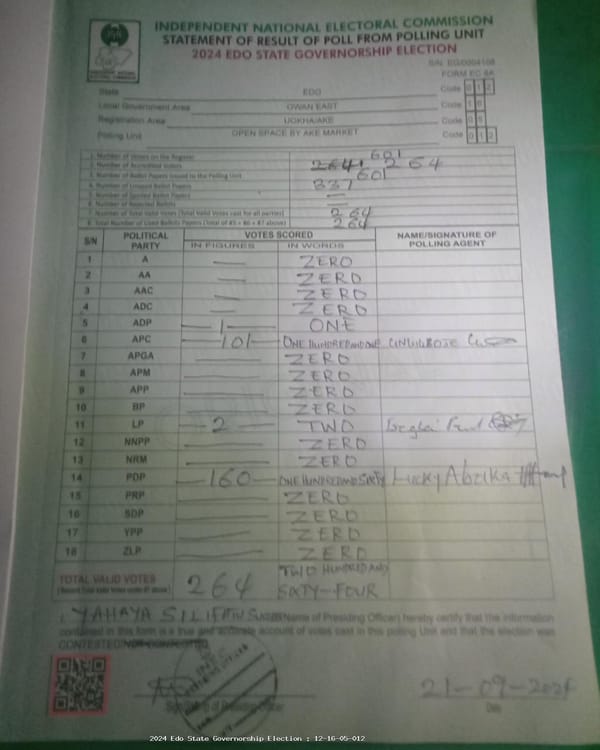 INDEPENDENT NATIONAL ELECTORAL COMMISSION
STATEMENT OF RESULT OF POLL FROM POLLING UNIT
2024 EDO STATE GOVERNORSHIP ELECTION
FORM EC 8A
State EDO Code 0 1 2
Local Government Area OWAN EAST Code 1 6
Registration Area UOKHA/AKE Code 0 5
Polling Unit OPEN SPACE BY AKE MARKET Code 0 1 2
1. Number of Voters on the Register 601
2. Number of Accredited Voters 264
3. Number of Ballot Papers Issued to the Polling Unit 601
4. Number of Unused Ballot Papers 337
5. Number of Spoiled Ballot Papers —
6. Number of Rejected Ballots —
7. Number of Total Valid Votes (Total Valid Votes cast for all parties) 264
8. Total Number of Used Ballot Papers (Total of #5 + #6 + #7 above) 264
S/N POLITICAL PARTY VOTES SCORED NAME/SIGNATURE OF POLLING AGENT
IN FIGURES IN WORDS
1 A — ZERO
2 AA — ZERO
3 AAC — ZERO
4 ADC — ZERO
5 ADP —1— ONE
6 APC —101— ONE HUNDRED AND ONE
7 APGA — ZERO
8 APM — ZERO
9 APP — ZERO
10 BP — ZERO
11 LP —2— TWO
12 NNPP — ZERO
13 NRM — ZERO
14 PDP —160— ONE HUNDRED AND SIXTY Lucky
15 PRP — ZERO
16 SDP — ZERO
17 YPP — ZERO
18 ZLP — ZERO
TOTAL VALID VOTES 264 TWO HUNDRED AND
SIXTY-FOUR
I, YAHAYA (Name of Presiding Officer) hereby certify that the information
contained in this form is a true and accurate account of votes cast in this polling Unit and that the election was
CONTESTED/NOT CONTESTED
21-09-2024
Date
2024 Edo State Governorship Election : 12-16-05-012